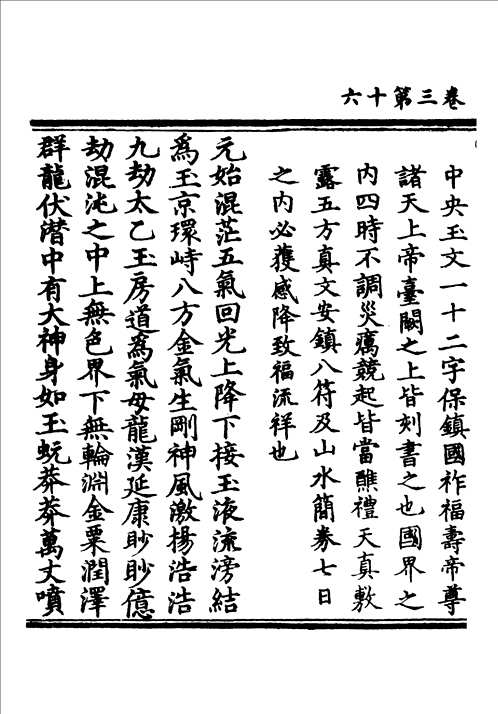 卷三第十六
中央玉文一十二字保鎮國祚福壽帝尊
諸天上帝臺闕之上皆刻書之也國界之
內四時不調災癘競起皆當醮禮天真敷
露五方真文安鎮八符及山水簡券七日
之內必獲感降致福流祥也
元始混茫五氣回光上降下接玉液流滂結
爲玉京環峙八方金氣生剛神風激揚浩浩
九劫太乙玉房道爲氣母龍漢延康眇眇億
劫混沌之中上無色界下無輪淵金粟潤澤
群龍伏潛中有大神身如玉蚖莽莽萬丈噴